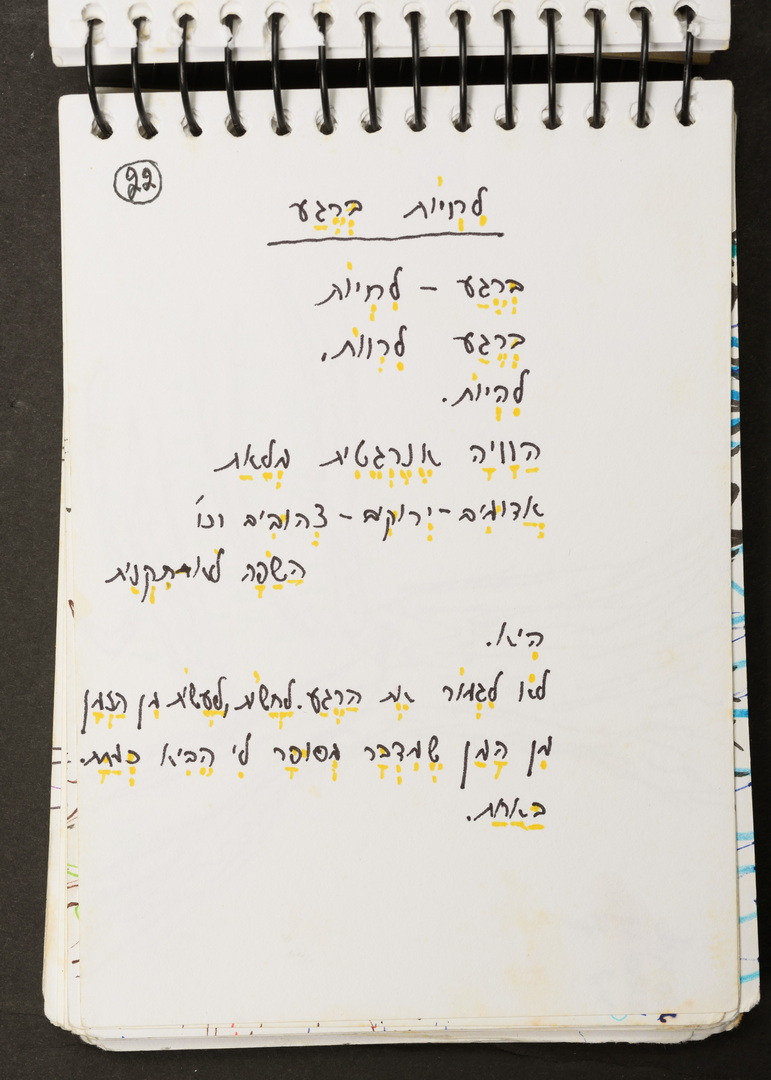 22
לִחְיוֹת בְּרֶגַע
בְּרֶגַע – לִחְיוֹת
בְּרֶגַע לִרְווֹת,
לִהְיוֹת.
הַוָויָה אֶנֶרְגֶטִית מְלֵאַת
אֲדוּמִים-יְרוּקִים-צְהוּבִים וכו'
הַשָׂפָה
הִיא.
לֹא לִגְמוֹר אֶת הָרֶגַע. לַחֲשׂוֹת, לַעֲשׂוֹת מִן הַזְמַן
מִן הָמָן שֶׁמְדֻבָּר מְסוּפָּר לִי הֵבִיא כְּמַת.
בְּאַחַת.